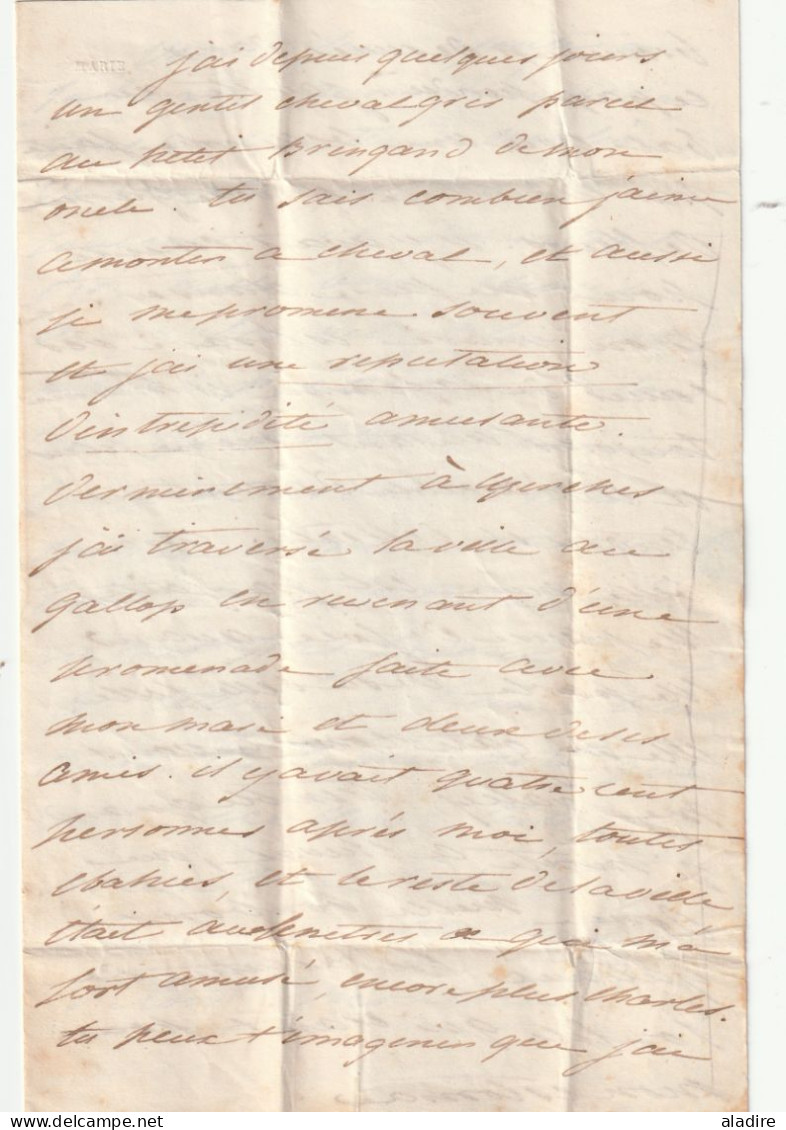 j'ai depuis quelques jours
un gentil cheval gris pareil
au petit Bringand de mon
oncle. tu sais combien j'aime
a monter a cheval, et aussi
je me promene souvent
et j'ai une reputation
d'intrepidité amusante.
dernierement à
j'ai traversé la ville au
gallop en revenant d'une
promenade faite avec
mon mari et deux de ses
amis. il y avait quatre cent
personnes après moi, toutes
ebahies, et le reste de la ville
était aux fenetres ce qui m'a
fort amusé, encore plus Charles.
tu peux t'imaginer que j'ai
aladire